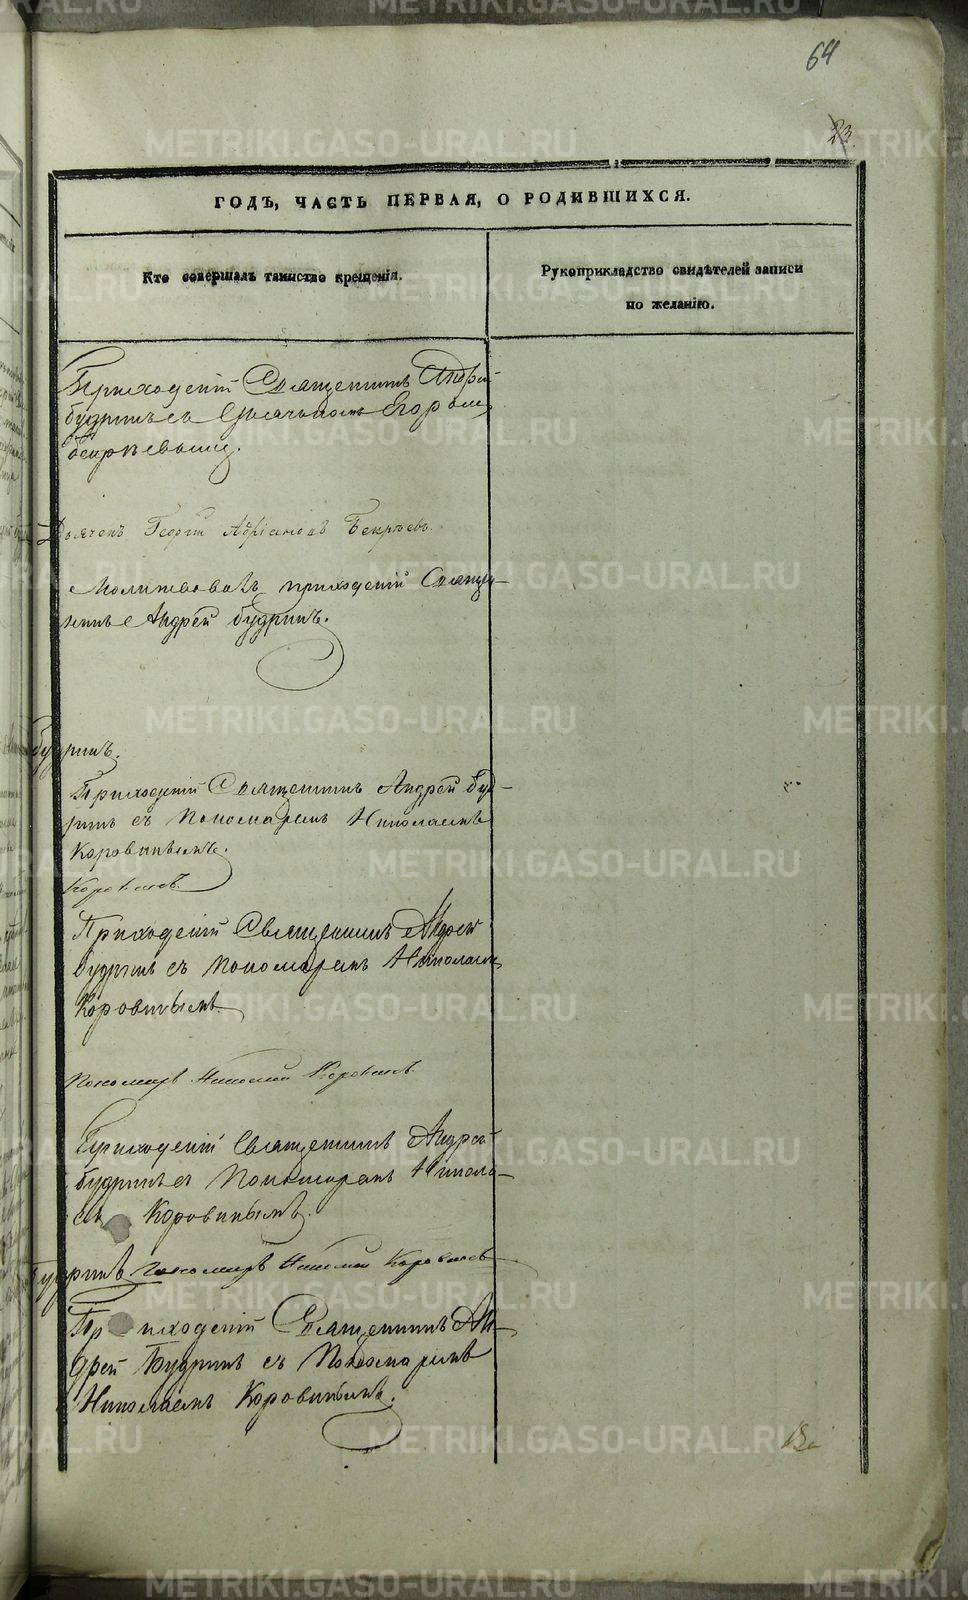 64
23.
ГОДЪ, ЧАСТЬ ПЕРВАЯ, О РОДИВШИХСЯ.
Кто совершалъ таинство крещенія.
Рукоприкладство свидѣтелей записи
по желанію.
Приходскій Священникъ Андрей
Будринъ съ Дьячкомъ Егоромъ
Бекрѣевымъ.
Дьячекъ Георгій Адріановъ Бекрѣевъ.
Молитвовалъ приходскій Священ-
никъ Андрей Будринъ.
Будринъ.
Приходскій Священникъ Андрей Буд-
ринъ съ Пономаремъ Николаемъ
Коровинымъ.
Коровинъ
Приходскій Священникъ Андрей
Будринъ съ Пономаремъ Николаемъ
Коровинымъ
Пономарь Николай Коровинъ
Приходскій Священникъ Андрей
Будринъ съ Пономаремъ Никола-
емъ Коровинымъ.
Будринъ Пономарь Николай Коровинъ
Приходскій Священникъ Ан-
дрей Будринъ съ Пономаремъ
Николаемъ Коровинымъ.
METRIKI.GASO-URAL.RU